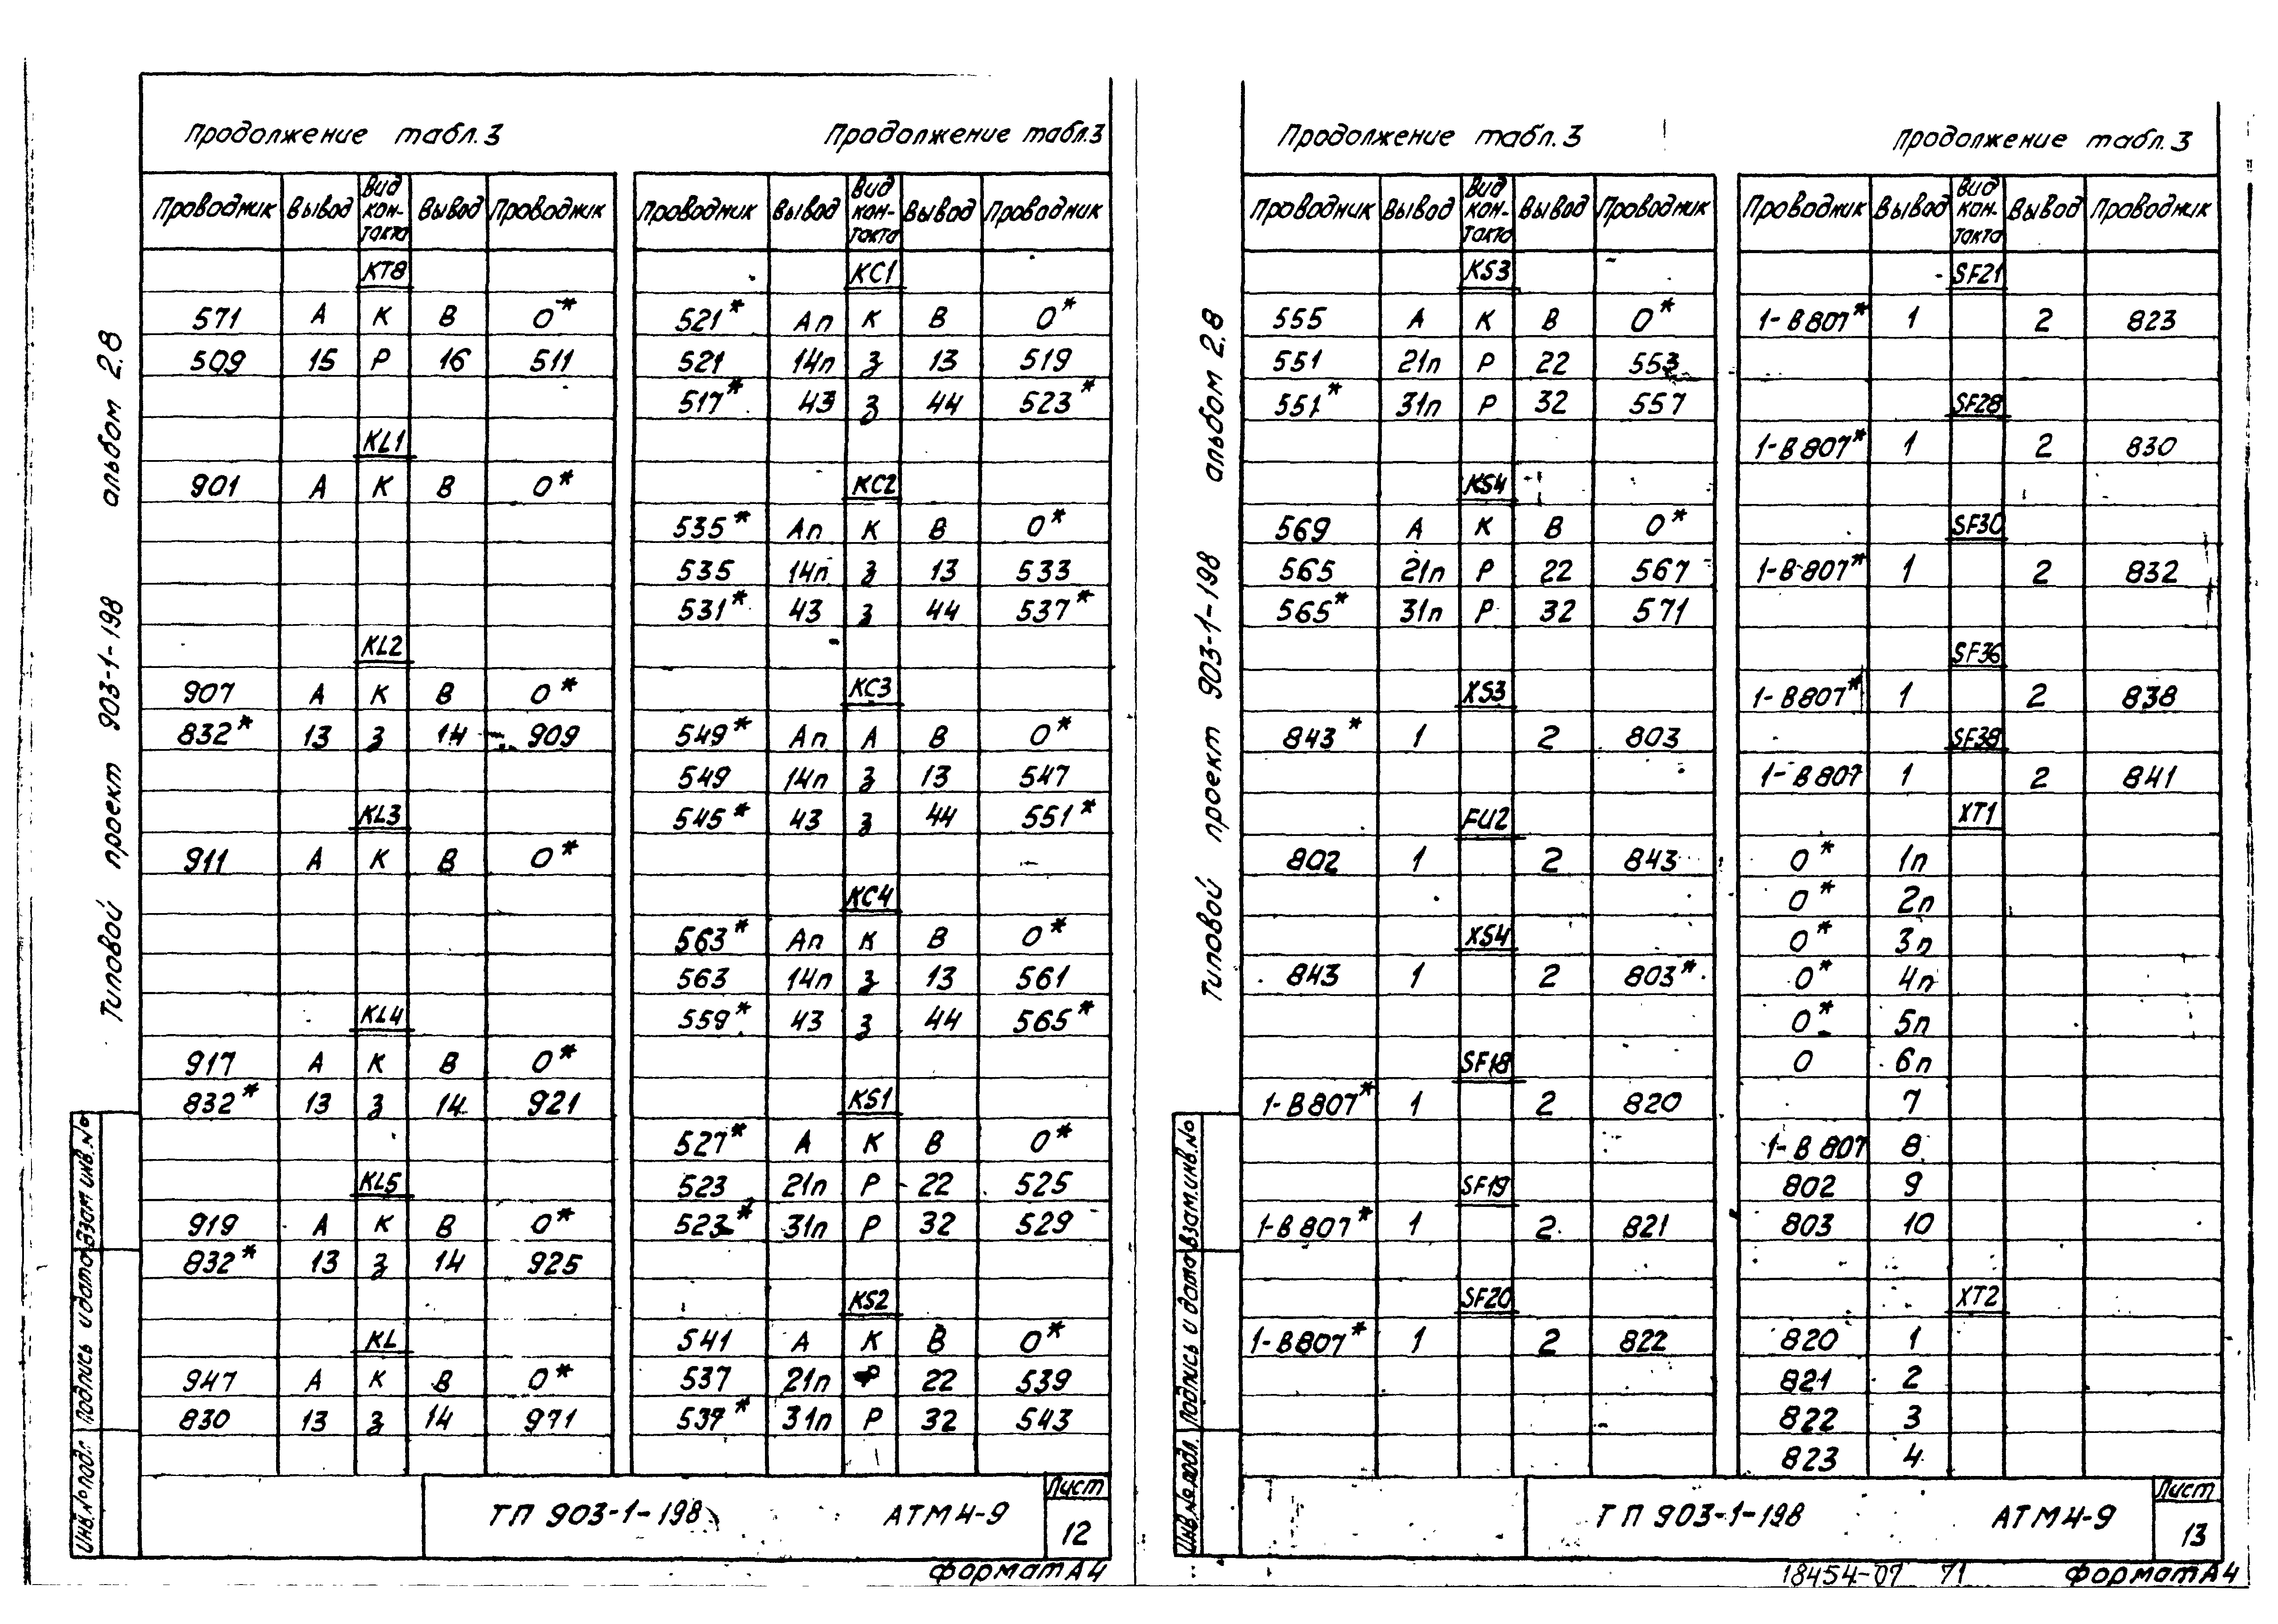 Продолжение табл.3
Проводник Вывод Вид кон-такта Вывод Проводник
КТ8
571 А К В 0*
509 15 Р 16 511
KL1
901 А К В 0*
KL2
907 А К В 0*
832* 13 З 14 909
KL3
911 А К В 0*
KL4
917 А К В 0*
832* 13 З 14 921
KL5
919 А К В 0*
832* 13 З 14 925
KL
947 А К В 0*
830 13 З 14 971
Продолжение табл.3
Проводник Вывод Вид кон-такта Вывод Проводник
КС1
521* Ап К В 0*
521 14п З 13 519
517* 43 З 44 523*
КС2
535* Ап К В 0*
535 14п З 13 533
531* 43 З 44 537*
КС3
549* Ап А В 0*
549 14п З 13 547
545* 43 З 44 551*
КС4
563* Ап К В 0*
563 14п З 13 561
559* 43 З 44 565*
KS1
527* А К В 0*
523 21п Р 22 525
523* 31п Р 32 529
KS2
541 А К В 0*
537 21п Р 22 539
537* 31п Р 32 543
Типовой проект 903-1-198 альбом 2.8
Инв.№подл. Подпись и дата Взам.инв.№
ТП 903-1-198 АТМ4-9
Лист
12
Формат А4
Продолжение табл.3
Проводник Вывод Вид кон-такта Вывод Проводник
KS3
555 А К В 0*
551 21п Р 22 553
551* 31п Р 32 557
KS4
569 А К В 0*
565 21п Р 22 567
565* 31п Р 32 571
XS3
843* 1 2 803
FU2
802 1 2 843
XS4
843 1 2 803*
SF18
1-В807* 1 2 820
SF19
1-В807* 1 2 821
SF20
1-В807* 1 2 822
Продолжение табл.3
Проводник Вывод Вид кон-такта Вывод Проводник
SF21
1-В807* 1 2 823
SF28
1-В807* 1 2 830
SF30
1-В807* 1 2 832
SF36
1-В807* 1 2 838
SF38
1-В807 1 2 841
XT1
0* 1п
0* 2п
0* 3п
0* 4п
0* 5п
0 6п
7
1-В807 8
802 9
803 10
XT2
820 1
821 2
822 3
823 4
Типовой проект 903-1-198 альбом 2.8
Инв.№подл. Подпись и дата Взам.инв.№
ТП 903-1-198 АТМ4-9
Лист
13
18454-07 71
Формат А4